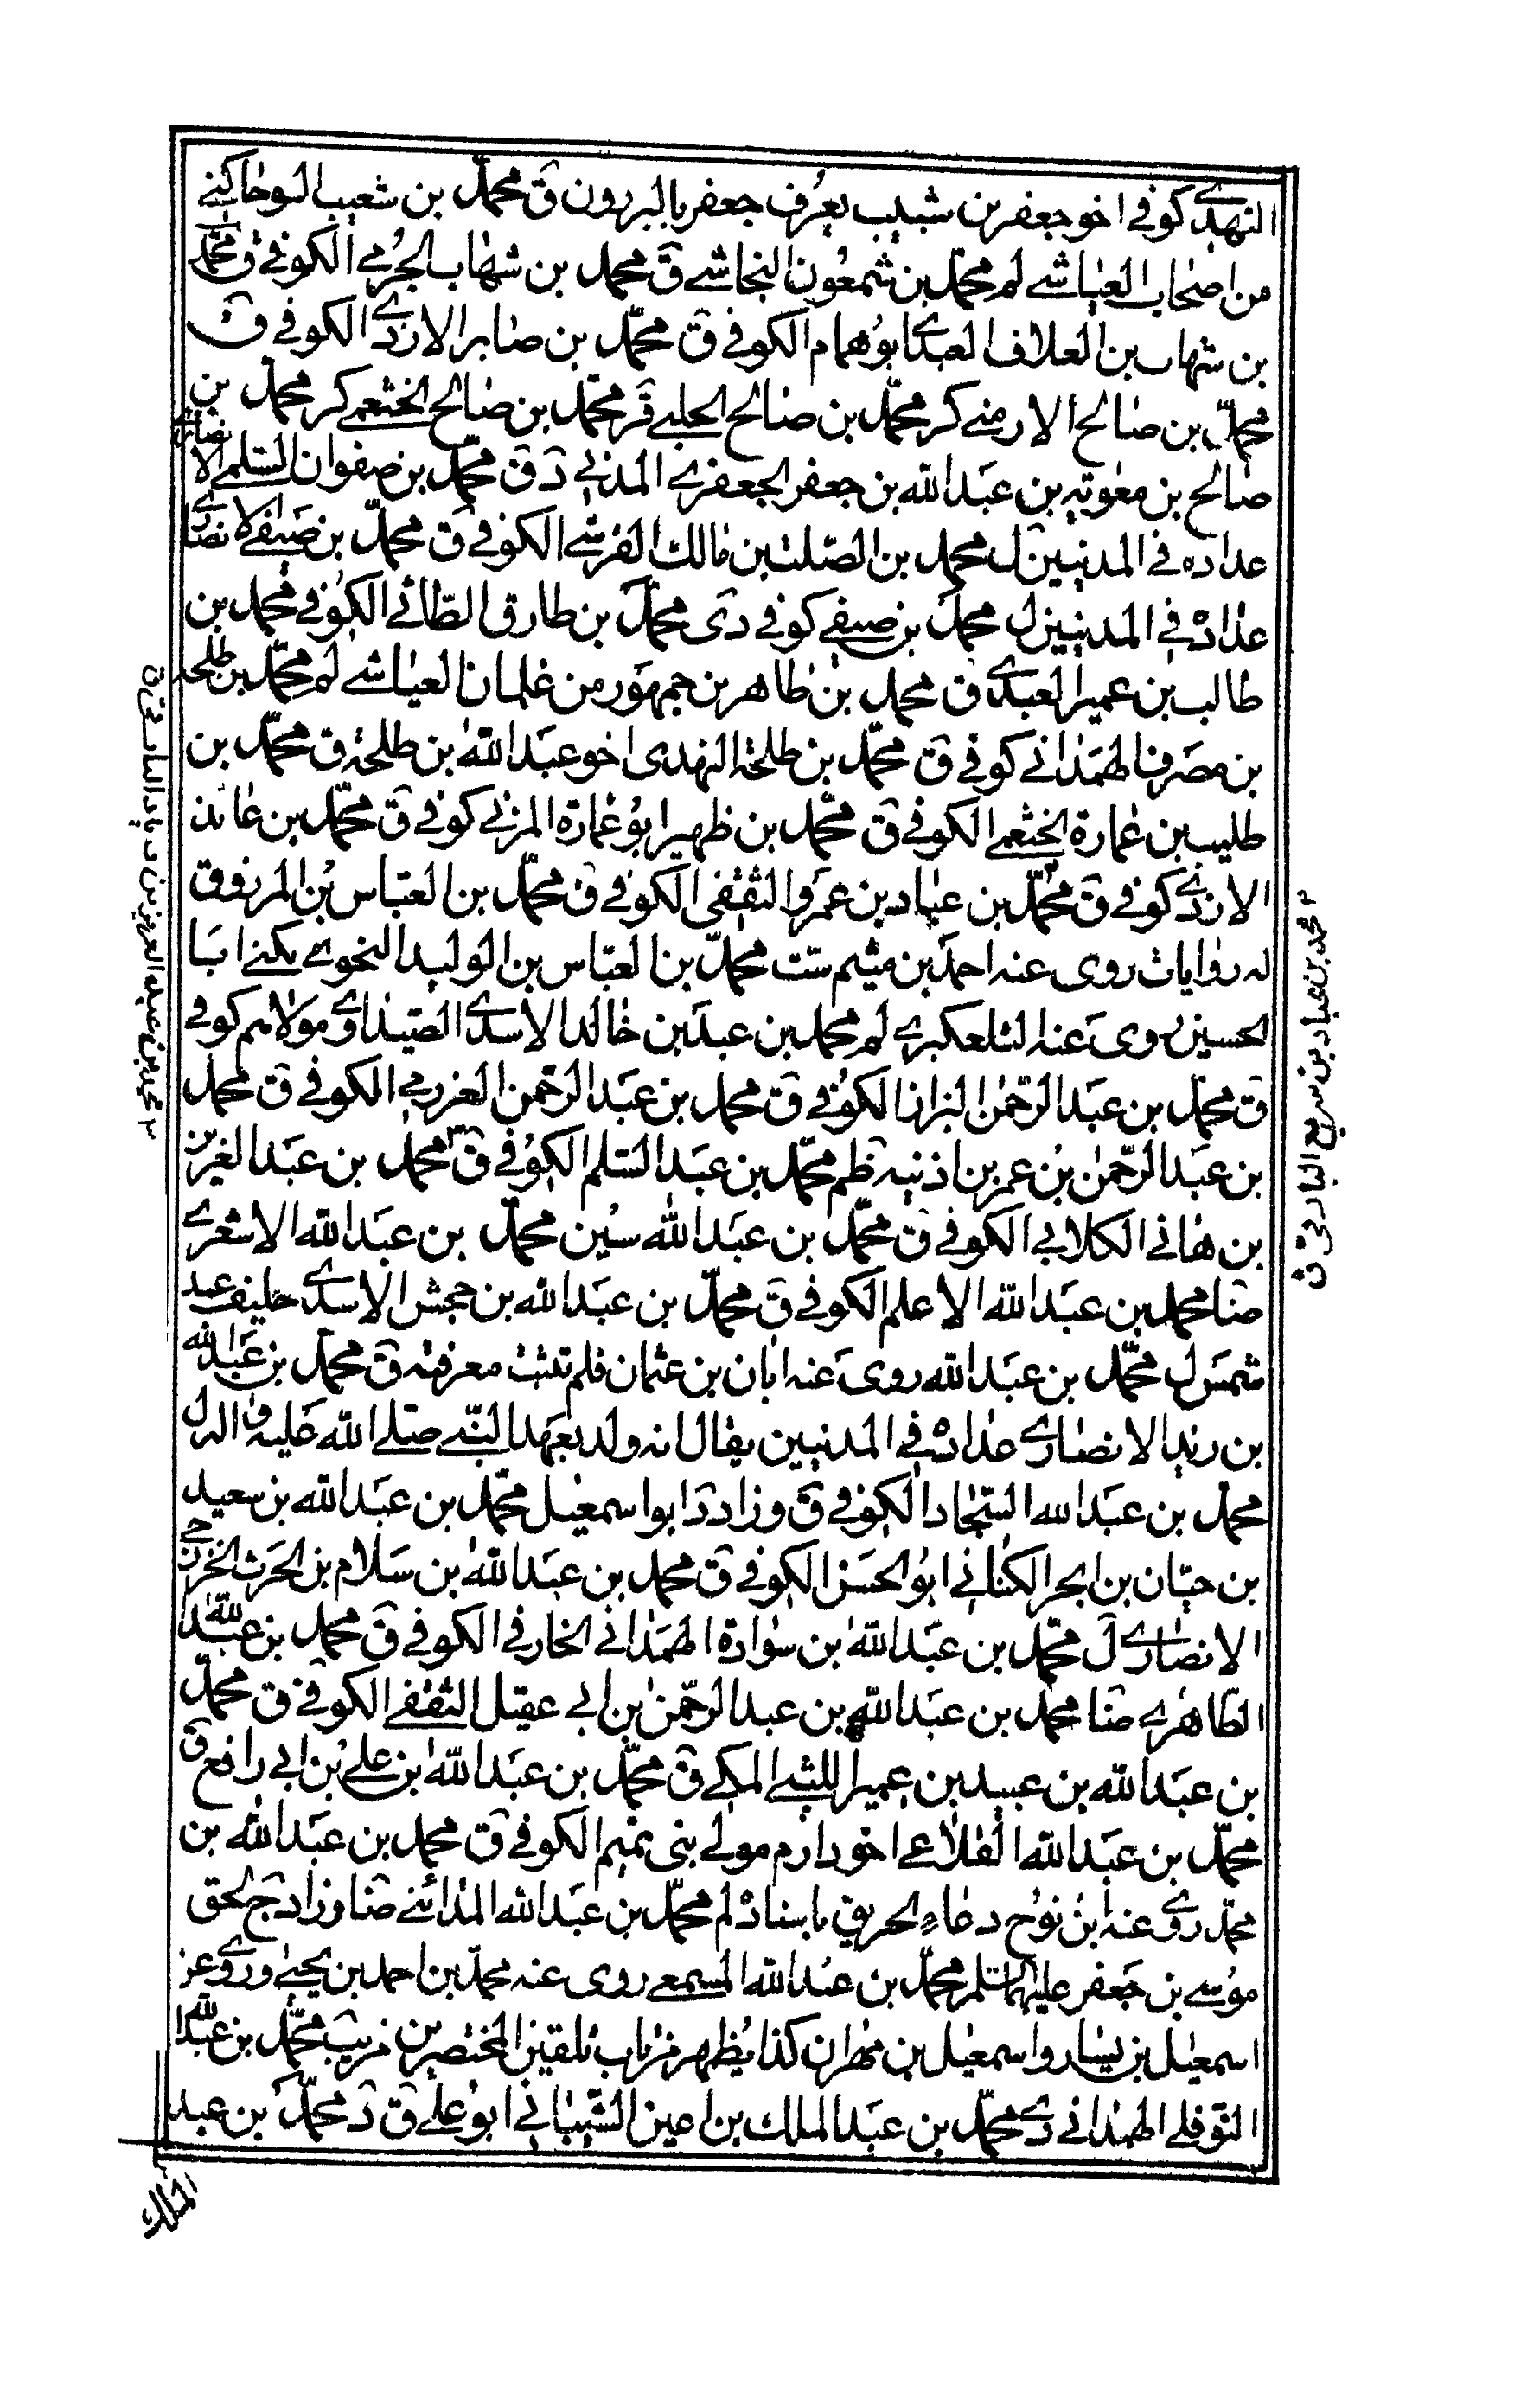 النهدي كوفي اخو جعفر بن شبيب يعرف جعفر بالبررون ق محمد بن شعيب
من اصحاب العياشي لم محمد بن شمعون النجاشي ق محمد بن شهاب الجرمي الكوفي ق محمد
بن شهاب بن العلاف العبدي ابو همام الكوفي ق محمد بن صابر الازدي الكوفي ق
محمد بن صالح الارمني كر محمد بن صالح الحلبي قر محمد بن صالح الخثعمي كر محمد بن
صالح بن معوية بن عبد الله بن جعفر الجعفري المدني د ق محمد بن صفوان السلمي الانصاري
عداده في المدنيين ل محمد بن الصلت بن مالك القرشي الكوفي ق محمد بن صيفي الانصاري
عداده في المدنيين ل محمد بن صيفي كوفي دى محمد بن طارق الطائي الكوفي محمد بن
طالب بن عمير العبدي ق محمد بن طاهر بن جمهور من غلمان العياشي لم محمد بن طلحة
بن مصرف الهمداني كوفي ق محمد بن طلحة النهدى اخو عبد الله بن طلحة ق محمد بن
طليب بن عمارة الخثعمي الكوفي ق محمد بن ظهير ابو عمارة المزني كوفي ق محمد بن عائذ
الازدي كوفي ق محمد بن عباد بن عمرو الثقفي الكوفي ق محمد بن العباس بن المرزوق
له روايات روى عنه احمد بن ميثم ست محمد بن العباس بن الوليد النحوي يكنى ابا
الحسين روى عنه التلعكبري لم محمد بن عبد بن خالد الاسدي الصيداوي مولاهم كوفي
ق محمد بن عبد الرحمن البزاز الكوفي ق محمد بن عبد الرحمن العزرمي الكوفي ق محمد
بن عبد الرحمن بن عمر بن اذنية ظم محمد بن عبد السلم الكوفي ق محمد بن عبد العزيز
بن هاني الكلابي الكوفي ق محمد بن عبد الله سين محمد بن عبد الله الاشعري
ضا محمد بن عبد الله الاعلم الكوفي ق محمد بن عبد الله بن جحش الاسدي حليف عبد
شمس ل محمد بن عبد الله روى عنه ابان بن عثمان فلم تثبت معرفته ق محمد بن عبد الله
بن زيد الانصاري عداده في المدنيين يقال انه ولد بعهد النبي صلى الله عليه واله ل
محمد بن عبد الله السجاد الكوفي ق وزاد د ابو اسمعيل محمد بن عبد الله بن سعيد
بن حيان بن ابحر الكناني ابو الحسن الكوفي ق محمد بن عبد الله بن سلام بن الحرث الخزرجي
الانصاري ل محمد بن عبد الله بن سوادة الهمداني الخارفي الكوفي ق محمد بن عبد الله
الطاهري ضا محمد بن عبد الله بن عبد الرحمن بن ابي عقيل الثقفي الكوفي ق محمد
بن عبد الله بن عبيد بن عمير الليثي المكي ق محمد بن عبد الله بن علي بن ابي رافع ق
محمد بن عبد الله القلاعي اخو دارم مولى بني تميم الكوفي ق محمد بن عبد الله بن
محمد روى عنه ابن نوح دعاء الحريق باسناده لم محمد بن عبد الله المدائني ضا وزاد ج لحق
موسى بن جعفر عليهما السلم محمد بن عبد الله المسمعي روى عنه محمد بن احمد بن يحيى وروى عن
اسمعيل بن يسار واسمعيل بن مهران كذا يظهر من باب تلقين المحتضر من يب محمد بن عبد الله
النوفلي الهمداني دى محمد بن عبد الملك بن اعين الشيباني ابو علي ق د محمد بن عبد
الملك
محمد بن عباد بن سريع البارقي ق
محمد بن عبد العزيز بن